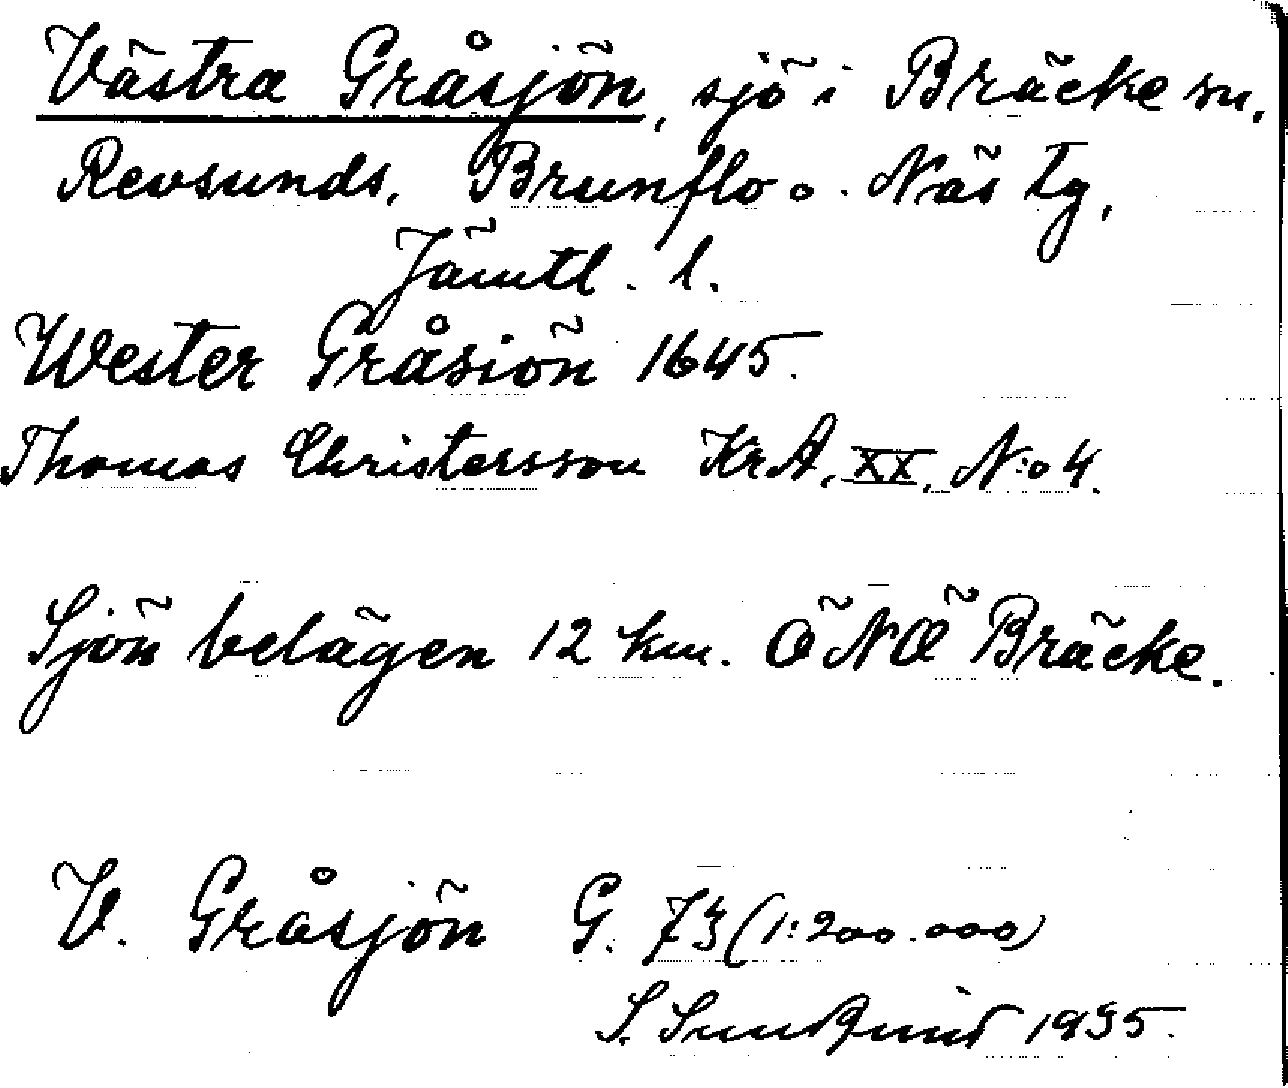 Västra Gråsjön, sjö i Bräcke sn,
Revsunds, Brunflo o. Näs tg,
Jämtl. l.
Wester Gråsiön 1645.
Thomas Christersson KrA, XX, N:o 4.
Sjön belägen 12 km. ÖNÖ Bräcke.
V. Gråsjön G. 73 (1:200.000)
S. 1935.